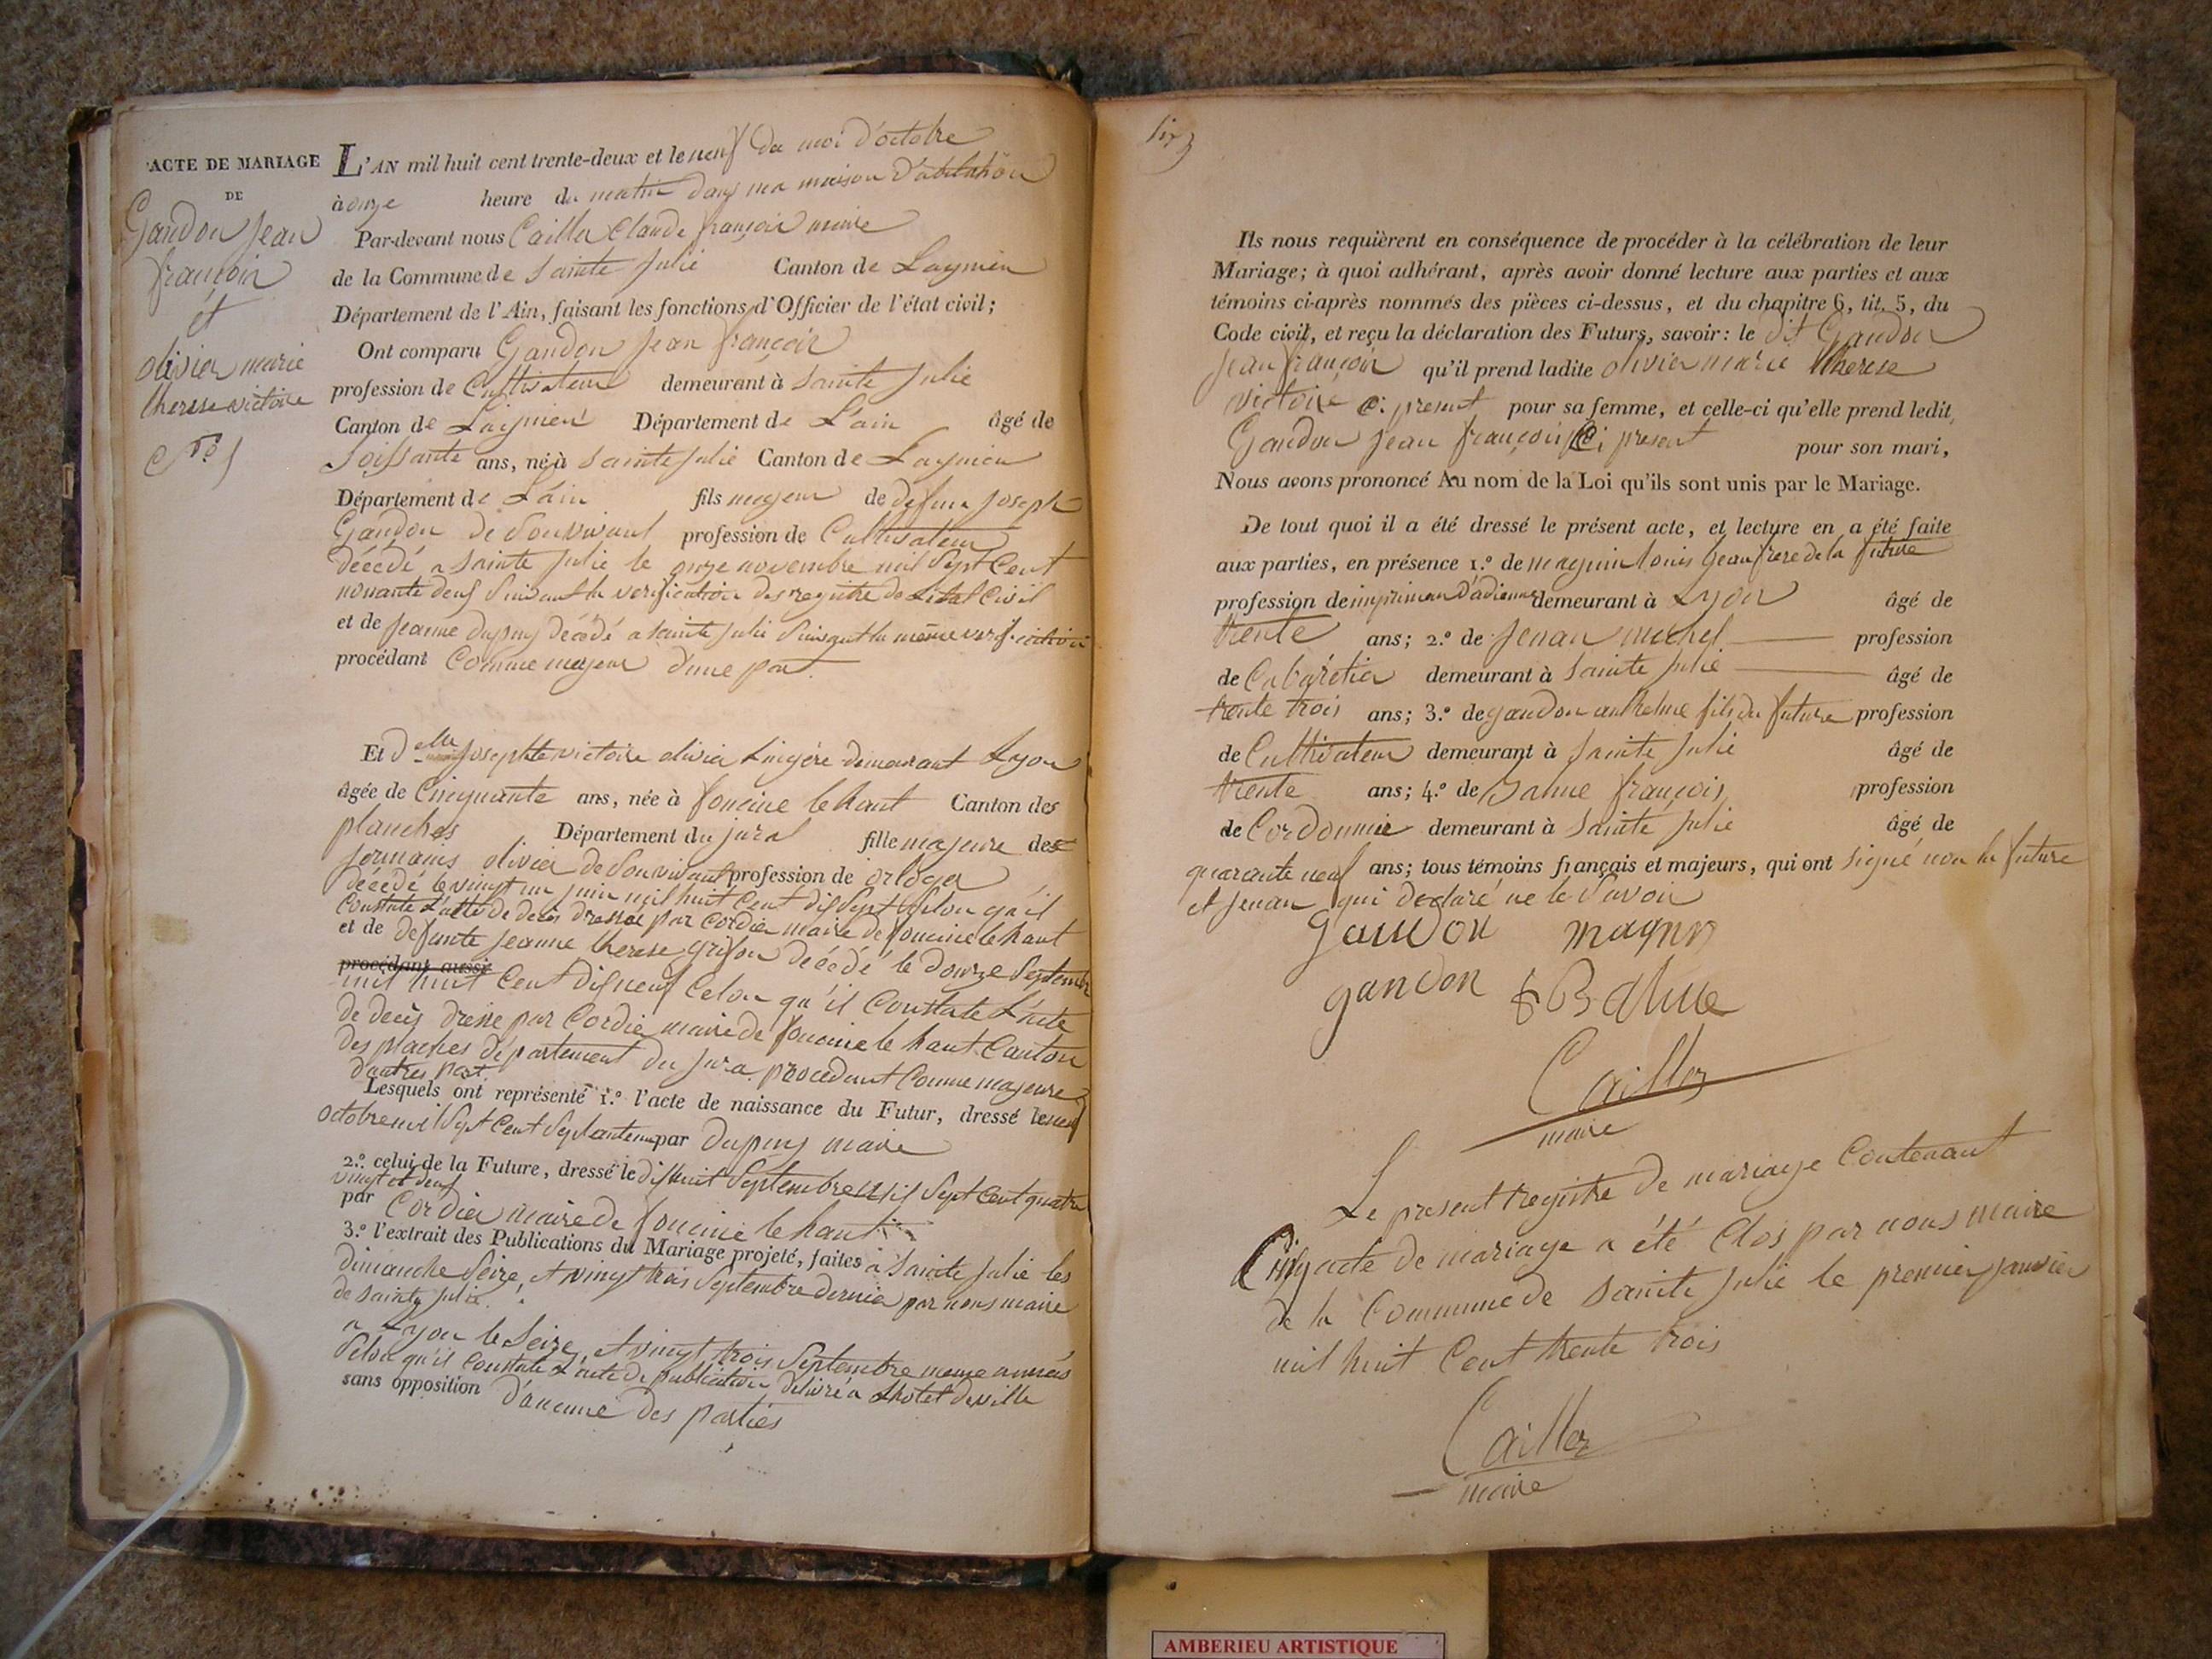 ACTE DE MARIAGE
DE
Gandon Jean
françois
et
olivier marie
therese victoire
N.º 5
L'AN mil huit cent trente-deux et le neuf du moi d'octobre
à onze heure du matin dans ma maison d'abitation
Par-devant nous Caillez Claude françois maire
de la Commune de Sainte Julie Canton de Laynieu
Département de l'Ain, faisant les fonctions d'Officier de l'état civil;
Ont comparu Gandon Jean françois
profession de Cultivateur demeurant à Sainte Julie
Canton de Laignieu Département de L'ain âgé de
Soissante ans, né à Sainte Julie Canton de Laynieu
Département de L'ain fils majeur de defun Joseph
Gandon de Son vivant profession de Cultivateur
décédé a Sainte Julie le onze novembre mil Sept Cent
nonante deux Suivant la verification des registre de L'état Civil
et de Jeanne dupuy décédé a Sainte Julie Suivant la même verification
procédant Comme majeur d'une par
Et d'elle Josephte victoire olivier Lingére demeurant Lyon
âgée de Cinquante ans, née à foncine le haut Canton des
planches Département du jural fille majeure des
Jermains olivier de Son vivant profession de orloger
décédé le vingt un juin mil huit Cent dix Sept Selon qu'il
Constate L'acte de deces dressé par Cordier maire de foncine le haut
et de defunte Jeanne therese grifon décédé le douze Septembre
procédant aussi
mil huit Cent dix neuf Celon qu'il Constate L'acte
de deces dressé par Cordie maire de foncine le haut Canton
des planches département du Jura procedant Comme majeure
d'autres part.
Lesquels ont représenté 1.º l'acte de naissance du Futur, dressé le neuf
octobre mil Sept Cent Septante par dupuy maire
2.º celui de la Future, dressé le dix huit Septembre mil Sept Cent quatre
vingt et deux
par Cordier maire de foncine le haut
3.º l'extrait des Publications du Mariage projeté, faites a Sainte Julie les
dimanche Seize, et vingt trois Septembre dernier par nous maire
de Sainte Julie.
a Lyon le Seize, et vingt trois Septembre meme années
Selon qu'il Constate L'acte de publication delivré a Lhotel deville
sans opposition d'aucune des parties
six
Ils nous requièrent en conséquence de procéder à la célébration de leur
Mariage; à quoi adhérant, après avoir donné lecture aux parties et aux
témoins ci-après nommés des pièces ci-dessus, et du chapitre 6, tit. 5, du
Code civil, et reçu la déclaration des Futurs, savoir: le dit Gandon
Jean françois qu'il prend ladite olivier marie therese
victoire Ci present pour sa femme, et celle-ci qu'elle prend ledit
Gandon Jean françois Ci present pour son mari,
Nous avons prononcé Au nom de la Loi qu'ils sont unis par le Mariage.
De tout quoi il a été dressé le présent acte, et lecture en a été faite
aux parties, en présence 1.º de magnin louis beau frere de la future
profession de imprimeur d'indienne demeurant à Lyon âgé de
trente ans; 2.º de Jenan michel profession
de Cabaretier demeurant à Sainte Julie âgé de
trente trois ans; 3.º de gandon anthelme fils du future profession
de Cultivateur demeurant à Sainte Julie âgé de
trente ans; 4.º de Banne françois profession
de Cordonnie demeurant à Sainte Julie âgé de
quarante neuf ans; tous témoins français et majeurs, qui ont signé non la future
et Jenan qui declaré ne le Savoir
gandon magnin
gandon
Caillez
maire
Le present registre de mariage Contenant
Cinq acte de mariage a été Clos par nous maire
de la Commune de Sainte Julie le premier janvier
mil huit Cent trente trois
Caillez
maire
AMBERIEU ARTISTIQUE